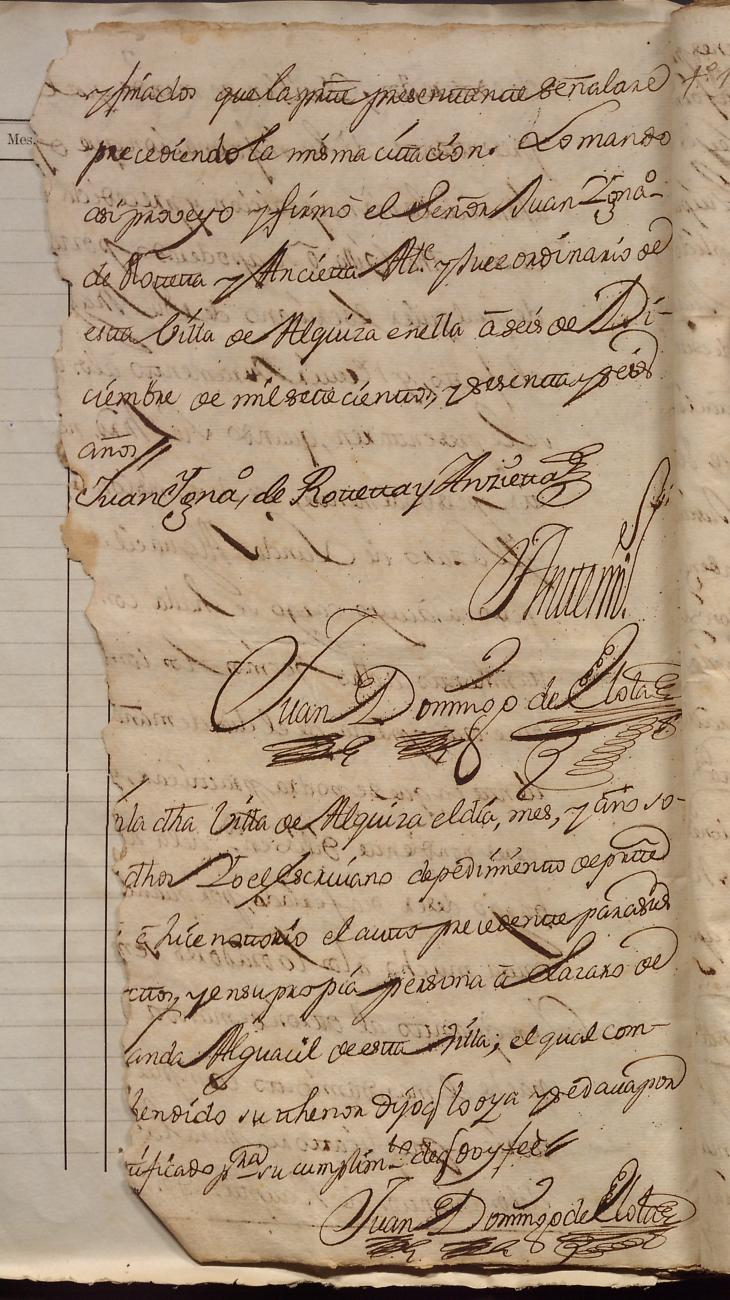 Mes.
y firmados que la parte presentante señalare
precediendo la misma citacion. Lo mando
asi proveyo y firmó el Señor Juan Ygnaº
de Rottetta y Ancietta Alc.e y Juez ordinario de
esta Villa de Alquiza en ella â seis de Di-
ciembre de mil sete cientos, y sesenta y seis
años//
Juan Ygnaº, de Rottetta y Anzietta
Antemi.
Juan Domingo de Elola
la dha Villa de Alquiza el dia, mes, y año so-
dhos Yo el Escriuano de pedimento de parte
é hice nottorio el autto precedente para sus
cttos, y en su propia persona â Lazaro de
anda Alguacil de esta Villa; el qual com-
hendido su thenor dijo q lo oya y se daua por
tificado pra su cumplimto de q doy feê
Juan Domingo de Elola